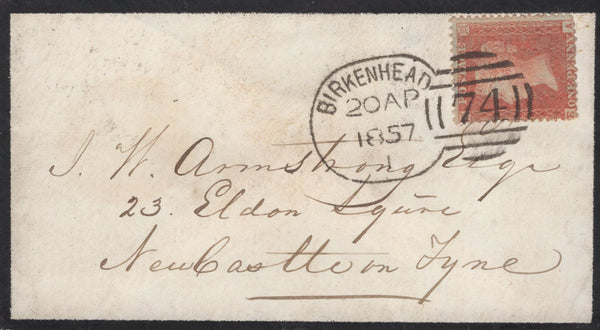 BIRKENHEAD
20 AP
1857
1
74
ONE PENNY
J. W. Armstrong Esqr
23. Eldon Sqüre
NewCastle on Tyne